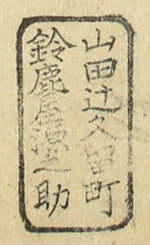 山田辻久留町
鈴鹿屋源之助